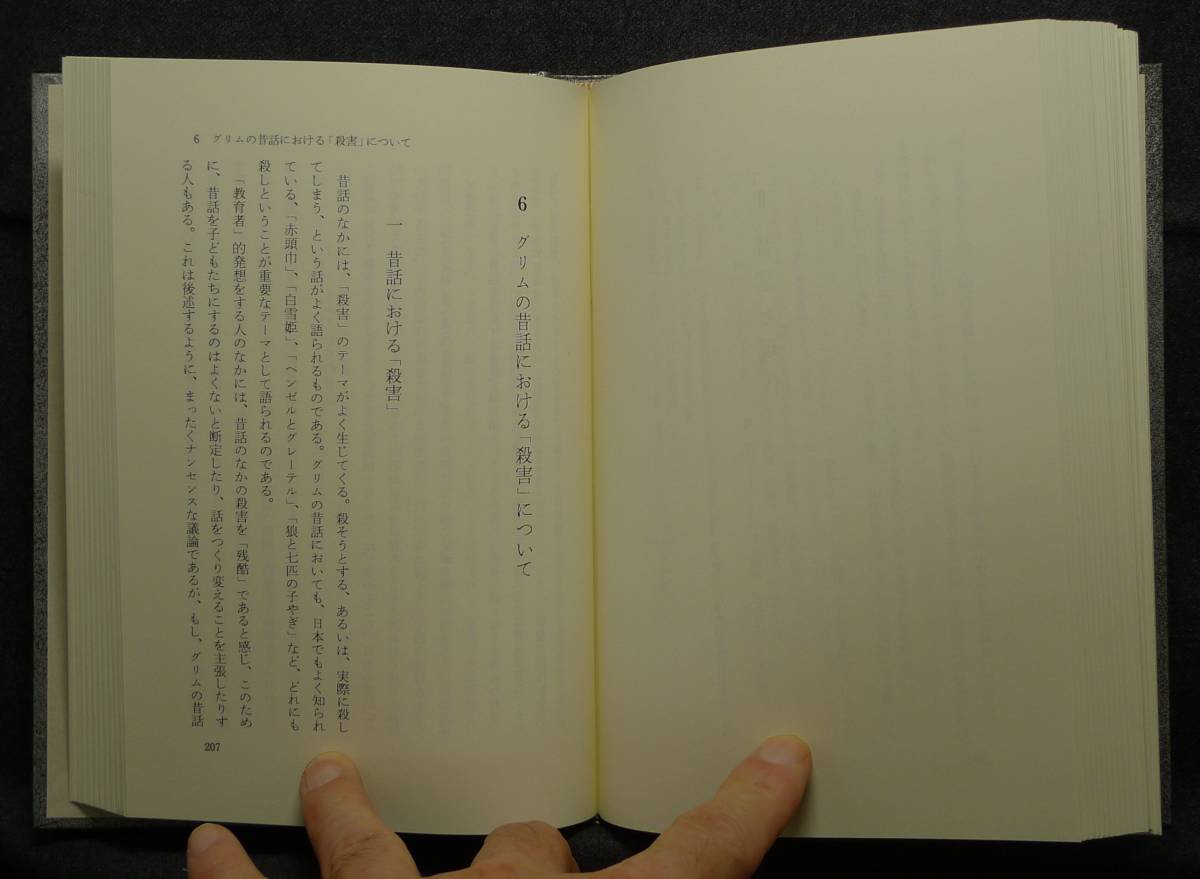 6　グリムの昔話における「殺害」について
6　グリムの昔話における「殺害」について
一　昔話における「殺害」
昔話のなかには、「殺害」のテーマがよく生じてくる。殺そうとする、あるいは、実際に殺し
てしまう、という話がよく語られるものである。グリムの昔話においても、日本でもよく知られ
ている、「赤頭巾」、「白雪姫」、「ヘンゼルとグレーテル」、「狼と七匹の子やぎ」など、どれにも
殺しということが重要なテーマとして語られるのである。
「教育者」的発想をする人のなかには、昔話のなかの殺害を「残酷」であると感じ、このため
に、昔話を子どもたちにするのはよくないと断定したり、話をつくり変えることを主張したりす
る人もある。これは後述するように、まったくナンセンスな議論であるが、もし、グリムの昔話
207